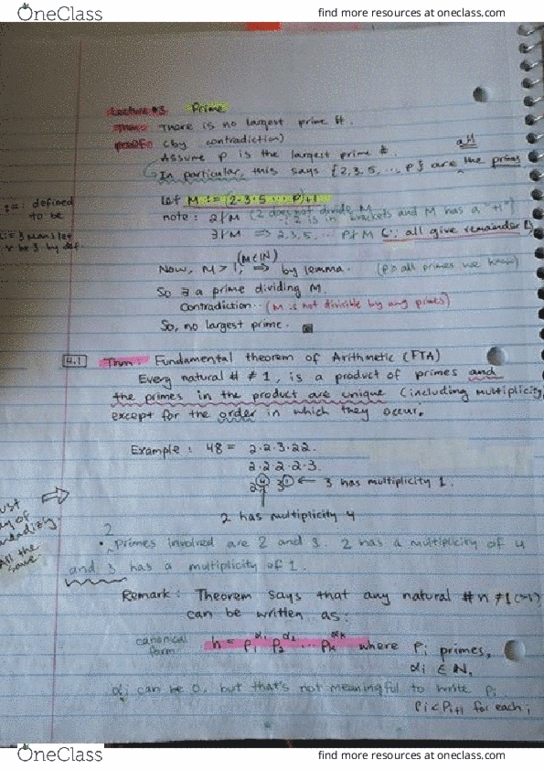 OneClass
find more resources at oneclass.com
Lecture #3 Prime
Thm: There is no largest prime #.
proof: (by contradiction)
Assume p is the largest prime #.
all
In particular, this says {2,3,5,...,p} are the primes
Let M := (2·3·5·...·p)+1
:= : defined
to be
note: 2∤M (2 does not divide M
2 is in brackets and M has a "+1")
3∤M ⇒ 2,3,5... p∤M (∵ all give remainder 1)
be 3 by def.
(M∈ℕ)
Now, M>1, ⇒ by lemma. (p>all primes we know)
So ∃ a prime dividing M.
Contradiction... (M is not divisible by any primes)
So, no largest prime.
4.1 Thm. Fundamental theorem of Arithmetic (FTA)
Every natural # ≠ 1, is a product of primes and
the primes in the product are unique (including multiplicity,
except for the order in which they occur.
Example: 48 = 2·2·3·2·2.
2·2·2·2·3.
2⁴ 3¹ ← 3 has multiplicity 1.
2 has multiplicity 4
2
Primes involved are 2 and 3. 2 has a multiplicity of 4
and 3 has a multiplicity of 1.
All the
same
Remark: Theorem says that any natural # n≠1 (>1)
can be written as:
canonical
form
n = p₁^α₁ p₂^α₂ ... pₖ^αₖ where pᵢ primes,
αᵢ ∈ ℕ,
αᵢ can be 0, but that's not meaningful to write pᵢ
pᵢ<pᵢ₊₁ for each i
OneClass
find more resources at oneclass.com